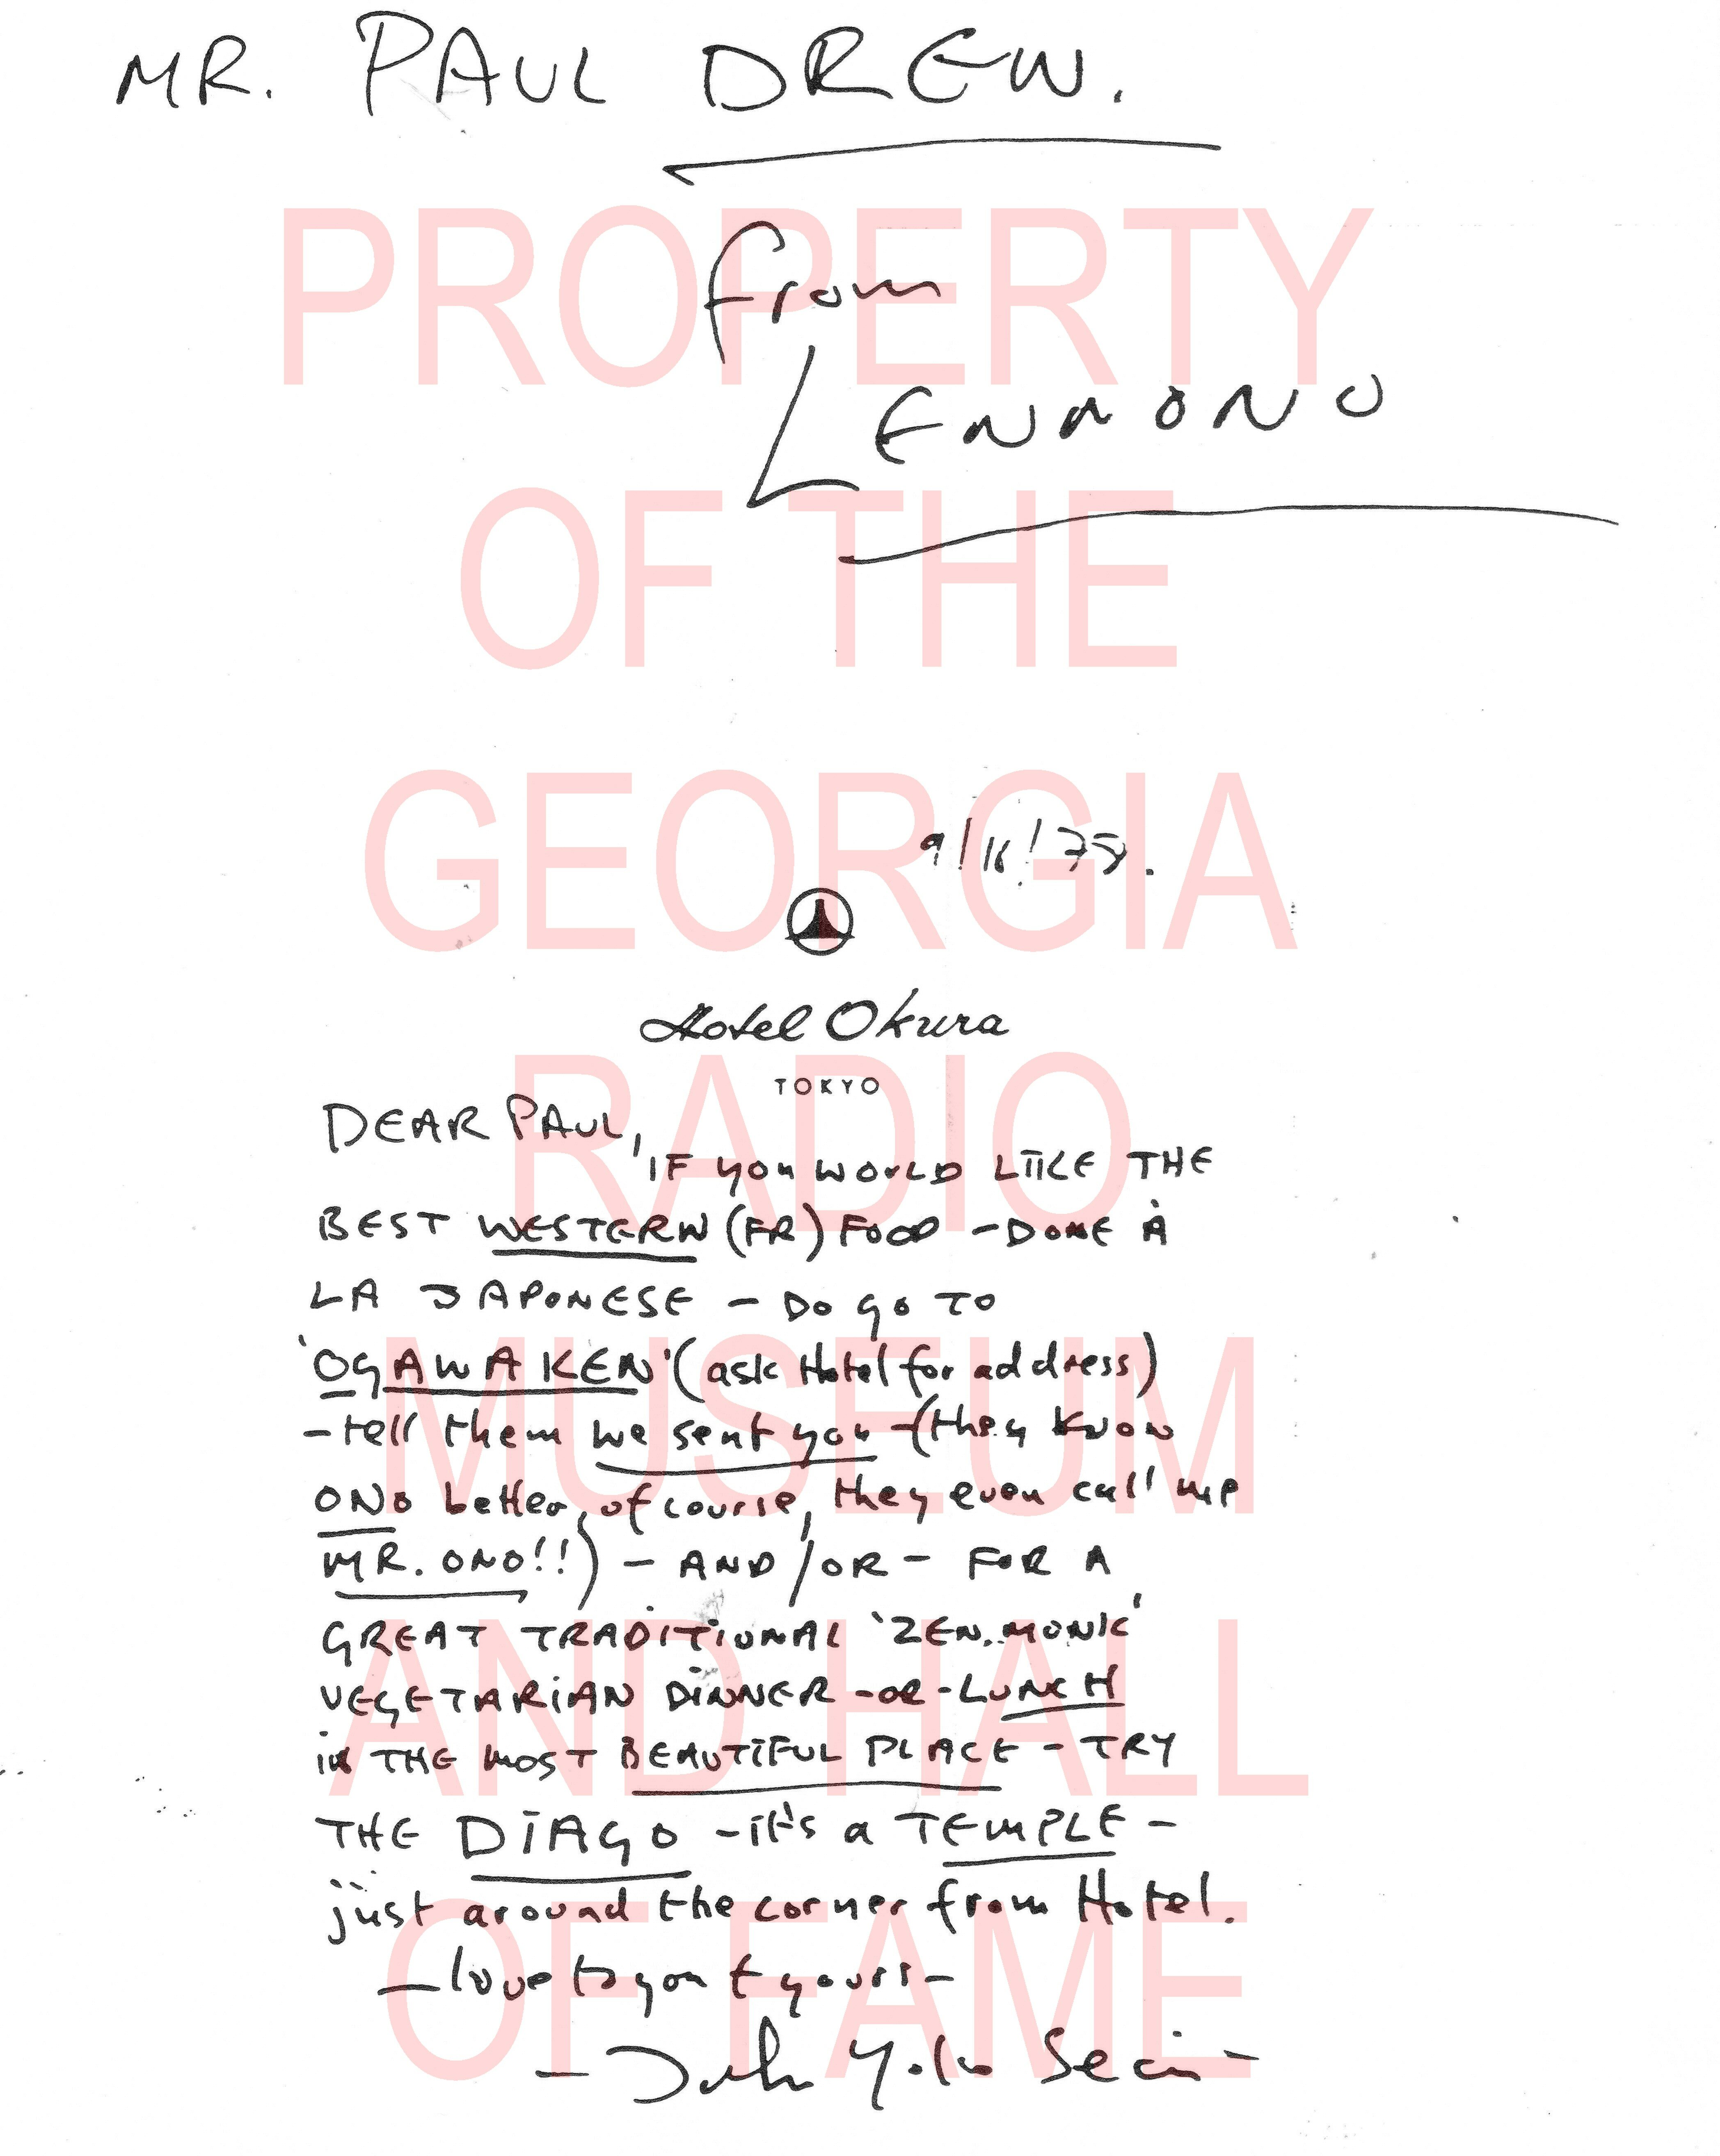 MR. PAUL DREW.
from
LENNONO
PROPERTY
OF THE
GEORGIA
RADIO
MUSEUM
AND HALL
OF FAME
Hotel Okura
TOKYO
DEAR PAUL,
'IF you WOULD LIKE THE
BEST WESTERN (FR) FOOD - DONE À
LA JAPONESE - DO GO TO
'OGAWAKEN' (ask Hotel for address)
- tell them we sent you - (they know
ONO better, of course, they even call me
MR. ONO!!) - AND/OR - FOR A
GREAT TRADITIONAL 'ZEN.MONK'
VEGETARIAN DINNER -OR- LUNCH
in THE MOST BEAUTIFUL PLACE - TRY
THE DIAGO - it's a TEMPLE -
just around the corner from Hotel.
- love to you + yours -
- John Yoko Sean -